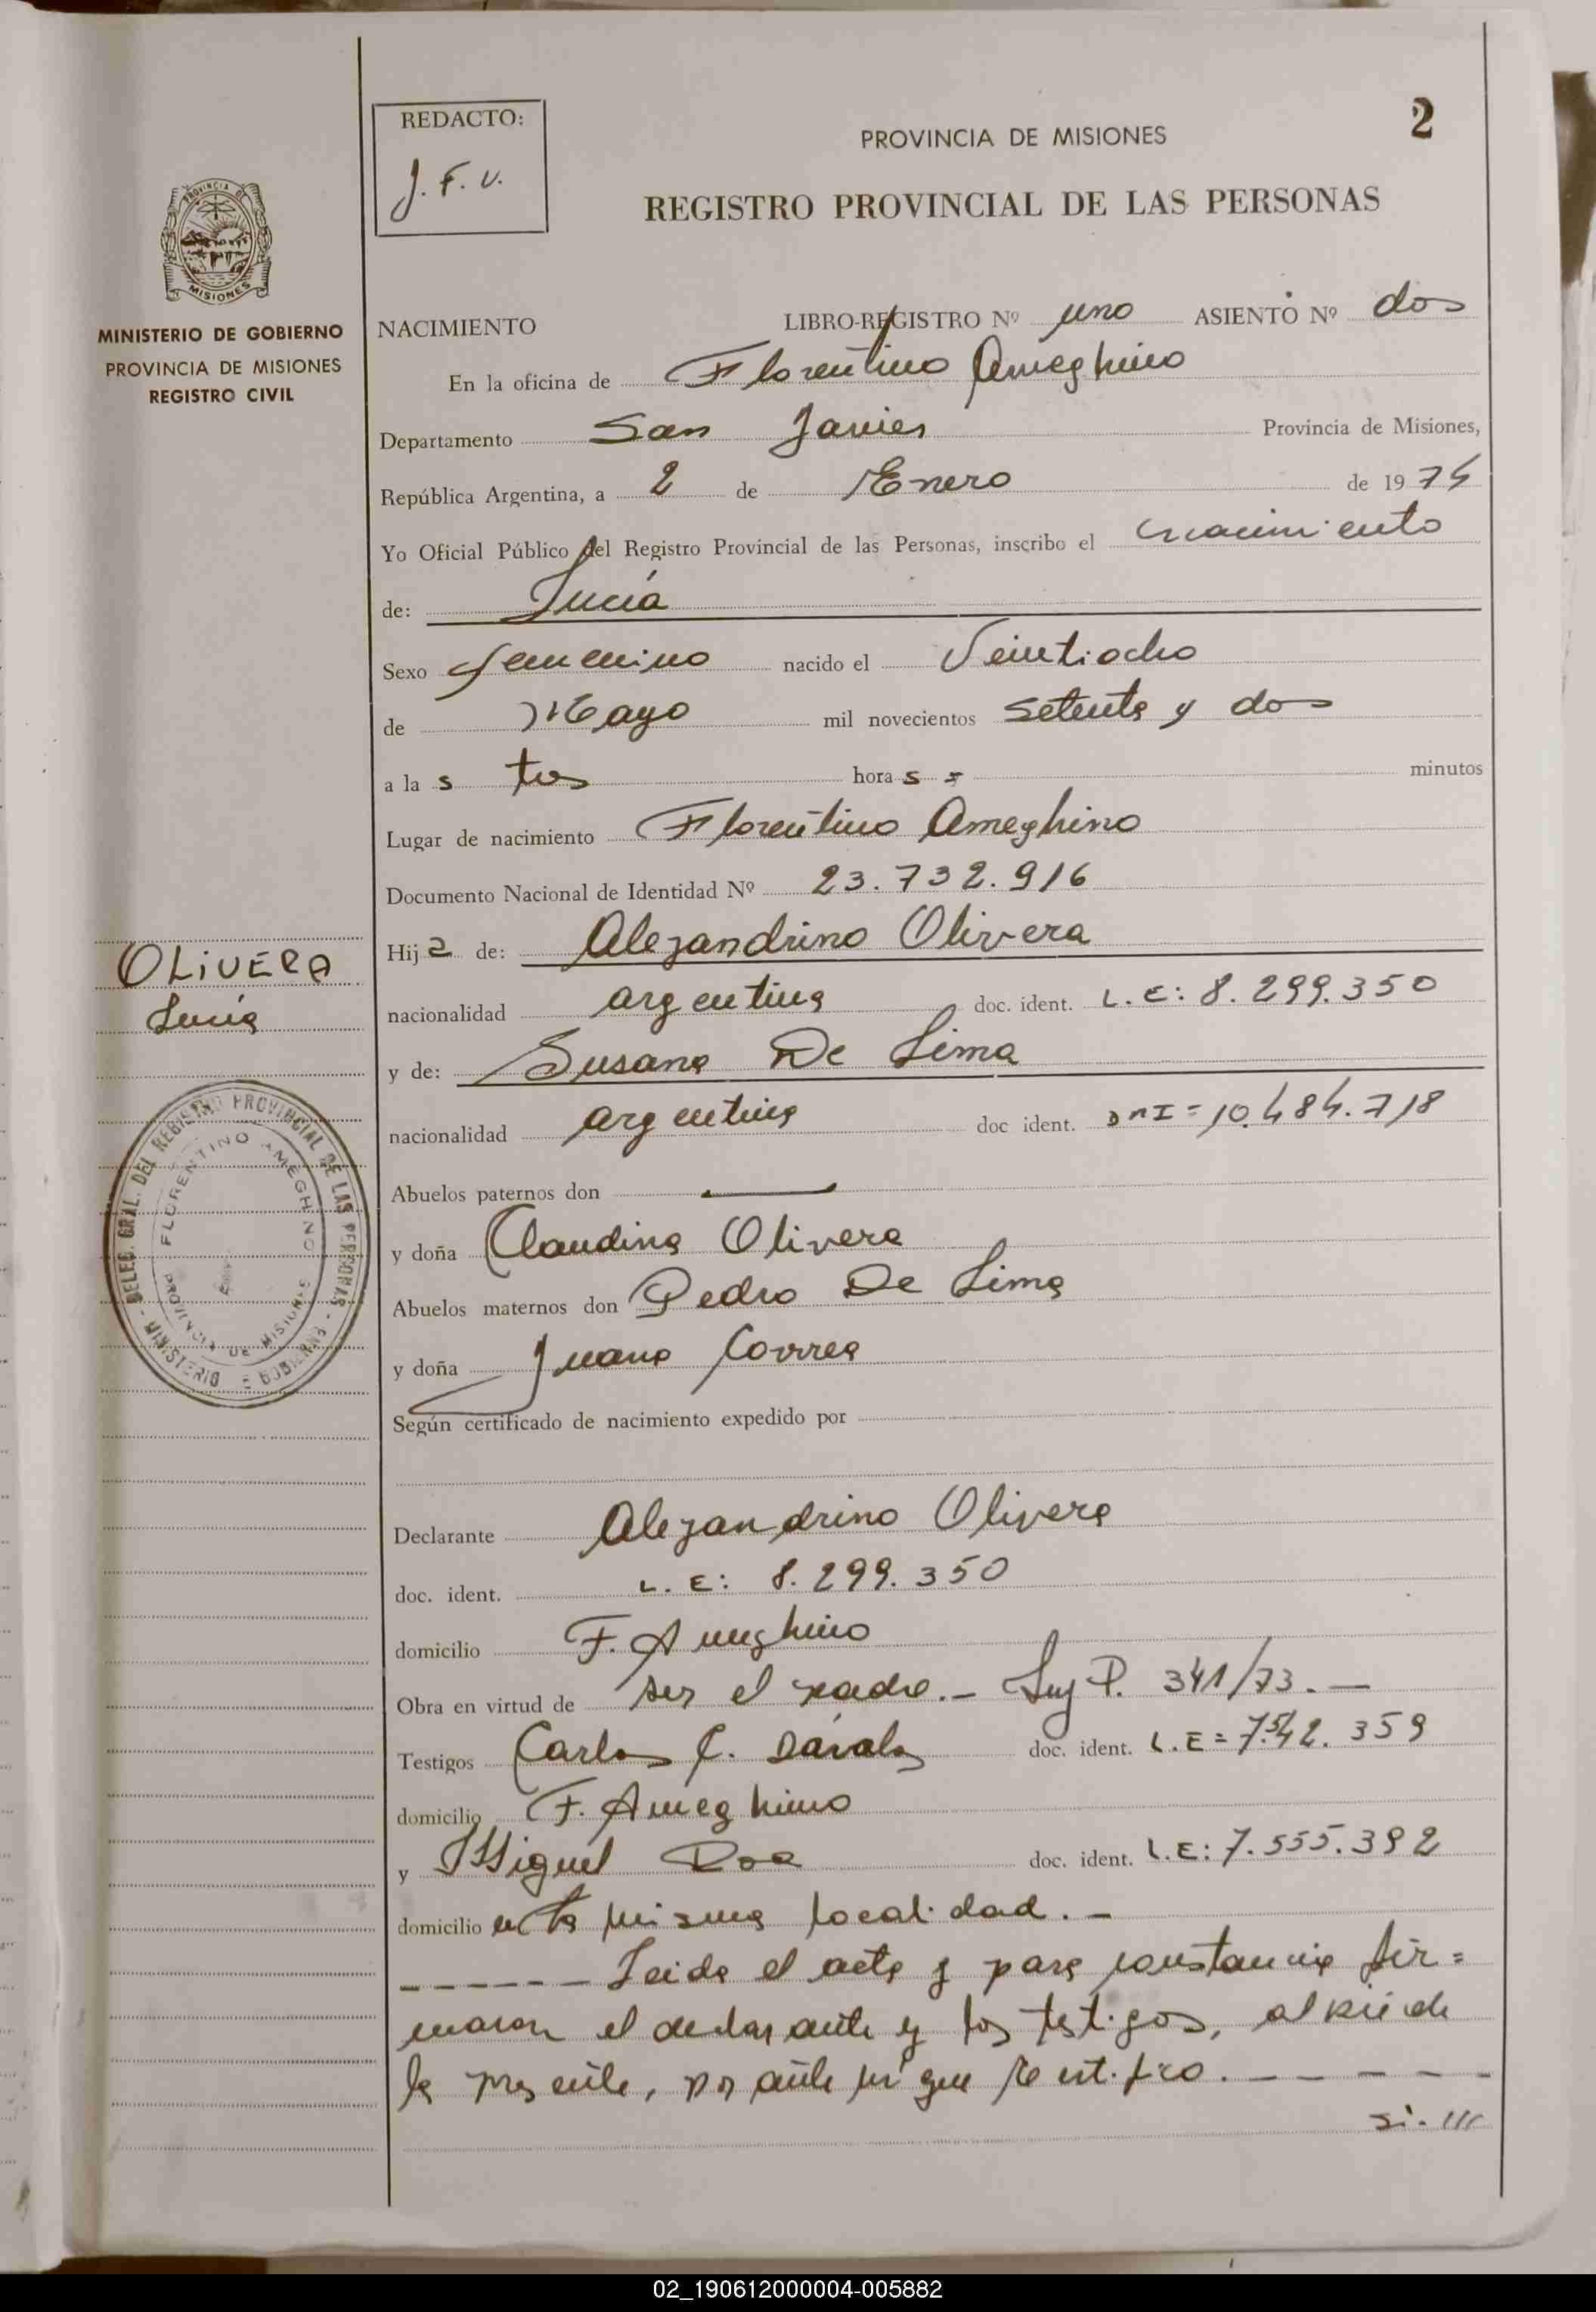 REDACTO:
J. F. V.
2
PROVINCIA DE MISIONES
REGISTRO PROVINCIAL DE LAS PERSONAS
PROVINCIA DE
MISIONES
MINISTERIO DE GOBIERNO
PROVINCIA DE MISIONES
REGISTRO CIVIL
NACIMIENTO LIBRO-REGISTRO Nº uno ASIENTO Nº dos
En la oficina de Florentino Ameghino
Departamento San Javier Provincia de Misiones,
República Argentina, a 2 de Enero de 1974
Yo Oficial Público del Registro Provincial de las Personas, inscribo el nacimiento
de: Lucía
Sexo femenino nacido el Veintiocho
de Mayo mil novecientos setenta y dos
a la s tres hora s = minutos
Lugar de nacimiento Florentino Ameghino
Documento Nacional de Identidad Nº 23.732.916
Hij a de: Alejandrino Olivera
OLIVERA
Lucía
nacionalidad argentina doc. ident. L.E: 8.299.350
y de: Susana De Lima
nacionalidad argentina doc ident. DNI = 10.484.718
DELEG. GRAL. DEL REGISTRO PROVINCIAL DE LAS PERSONAS - MINISTERIO DE GOBIERNO -
FLORENTINO AMEGHINO
PROVINCIA DE MISIONES
Abuelos paternos don —
y doña Claudina Olivera
Abuelos maternos don Pedro De Lima
y doña Juana Correa
Según certificado de nacimiento expedido por
Declarante Alejandrino Olivera
doc. ident. L. E: 8.299.350
domicilio F. Ameghino
Obra en virtud de ser el padre.- Ley P. 341/73.—
Testigos Carlos C. Dávalos doc. ident. L.E = 7.542.359
domicilio F. Ameghino
y Miguel doc. ident. L.E: 7.555.392
domicilio en la misma localidad.-
------ Leida el acta y para constancia fir=
maron el declarante y los testigos, al pié de
la presente, por ante mí que certifico. — — — — —
si. ///
02_190612000004-005882